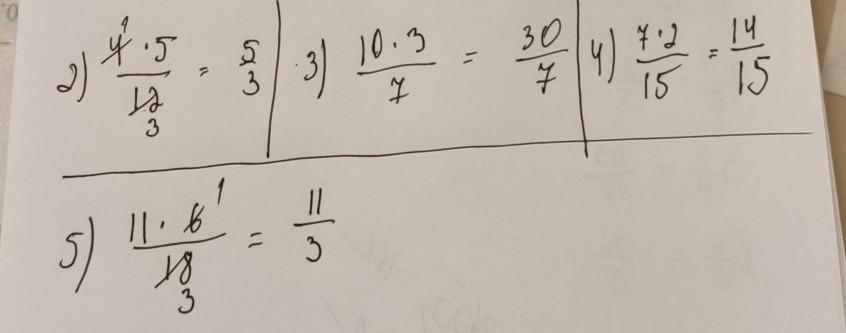 2) 4 1 · 5 / 12 3 = 5 / 3
3) 10 · 3 / 7 = 30 / 7
4) 7 · 2 / 15 = 14 / 15
5) 11 · 6 1 / 18 3 = 11 / 3